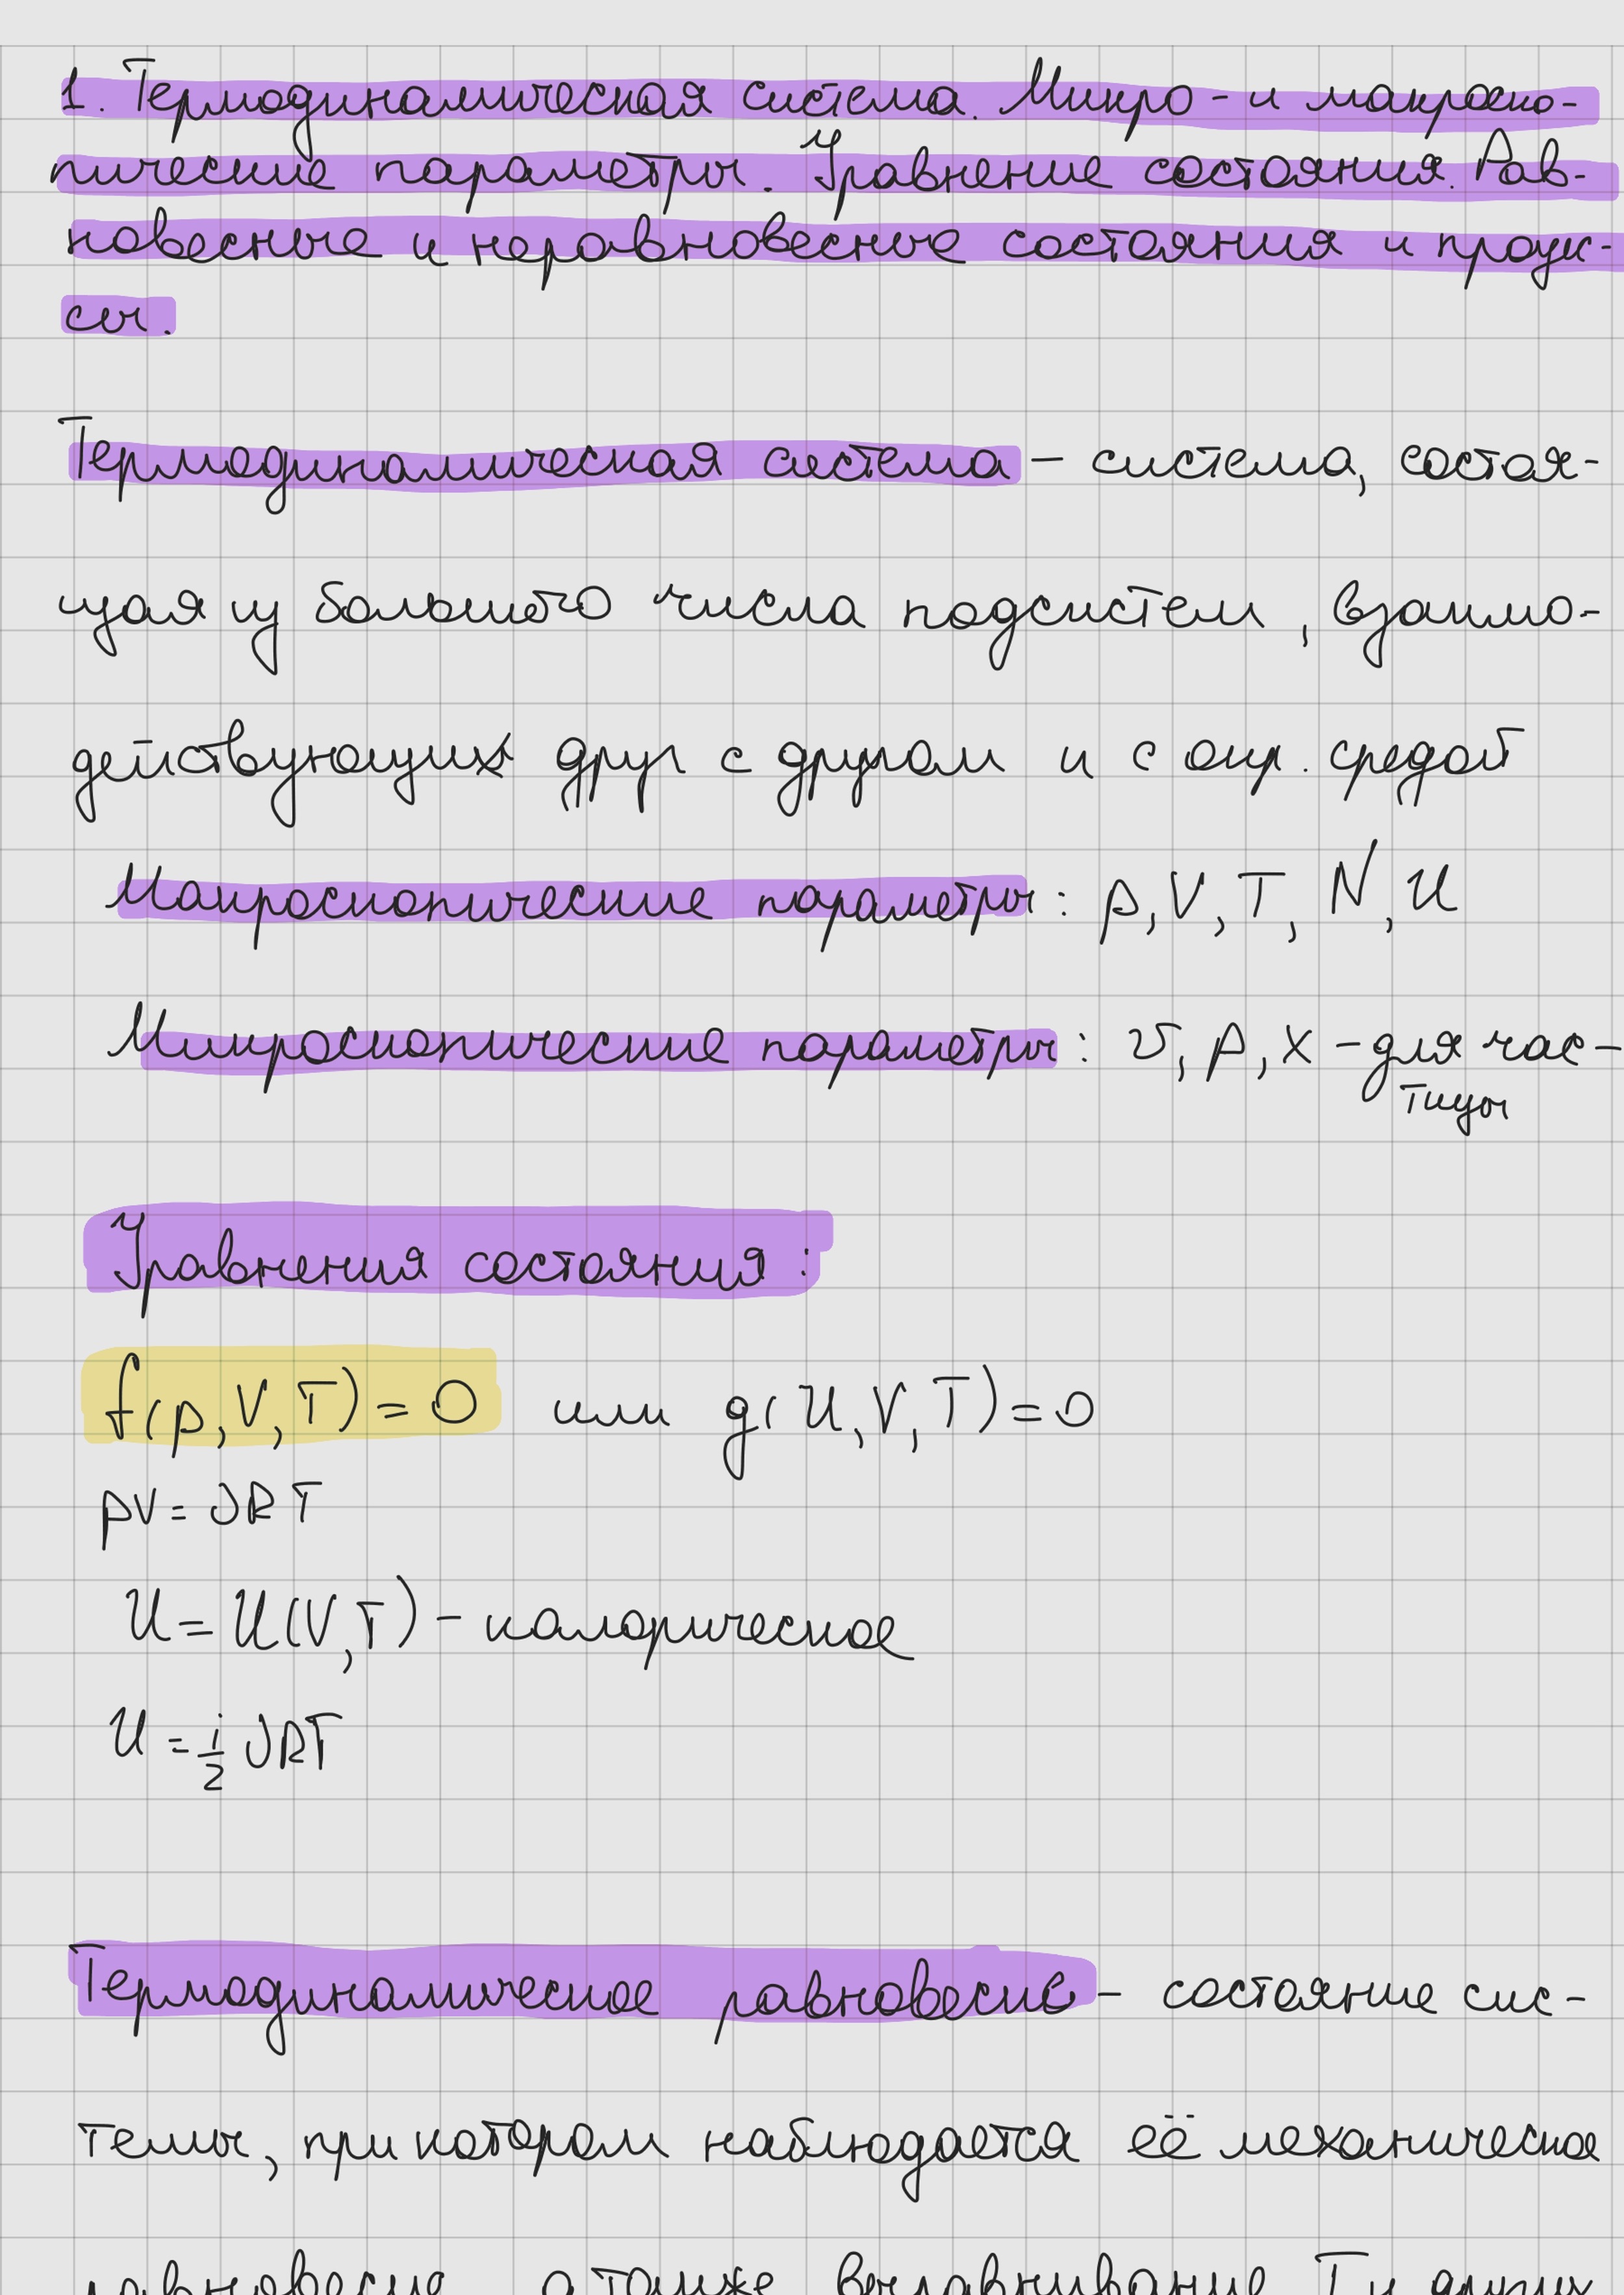 1. Термодинамическая система. Микро- и макроско-
пические параметры. Уравнение состояния. Рав-
новесные и неравновесные состояния и процес-
сы.
Термодинамическая система – система, состоя-
щая из большого числа подсистем, взаимо-
действующих друг с другом и с окр. средой
Макроскопические параметры: p, V, T, N, U
Микроскопические параметры: v, p, x – для час-
тицы
Уравнения состояния:
f(p, V, T) = 0 или g(U, V, T) = 0
pV = νRT
U = U(V, T) – калорическое
U = i/2 νRT
Термодинамическое равновесие – состояние сис-
темы, при котором наблюдается её механическое
равновесие, а также выравнивание T и других